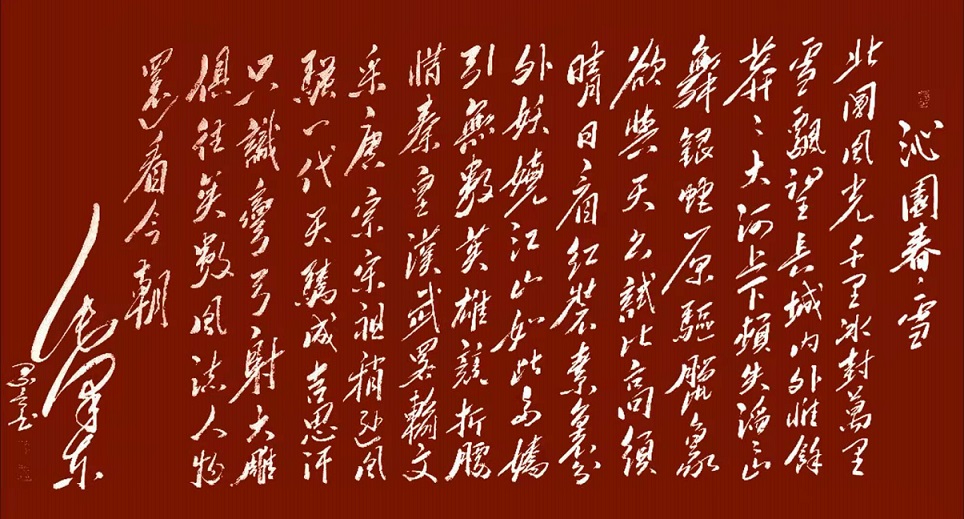 沁園春·雪
北國風光千里冰封萬里
雪飄望長城内外惟餘
莽〻大河上下頓失滔〻山
舞銀蛇原驅臘象
欲與天公試比高須
晴日看紅裝素裹分
外妖嬈江山如此多嬌
引無數英雄競折腰
惜秦皇漢武畧輸文
采唐宗宋祖稍遜風
騷一代天驕成吉思汗
只識彎弓射大雕
俱往矣數風流人物
還看今朝
毛澤東